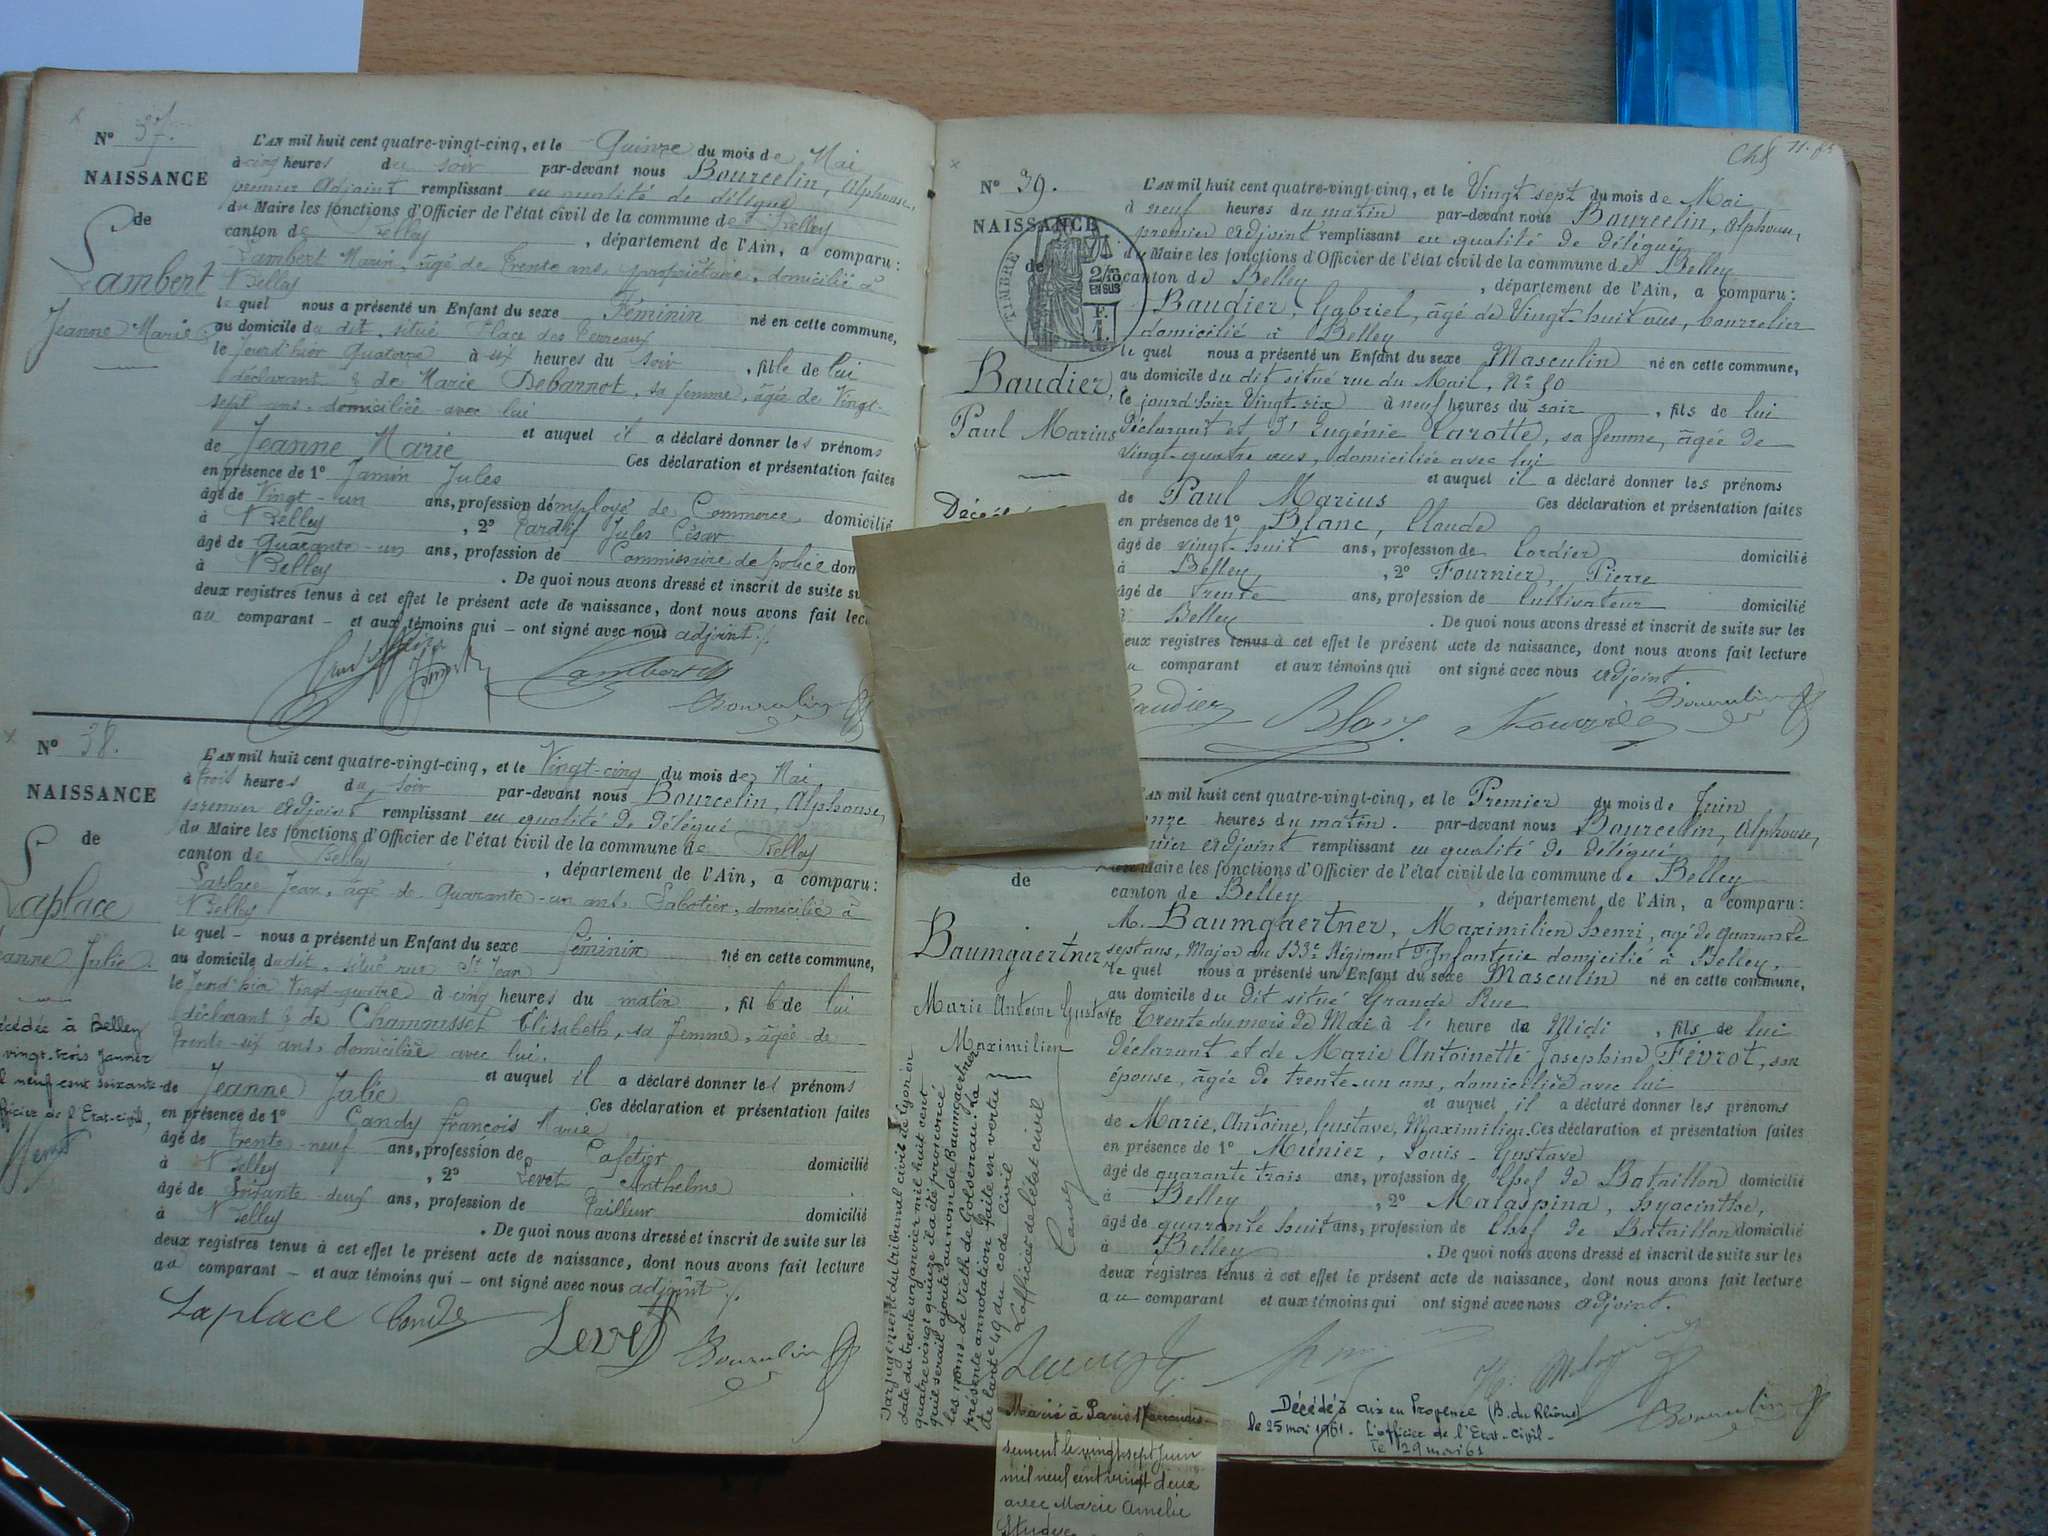 N° 37.
NAISSANCE
de
Lambert
Jeanne Marie
L'AN mil huit cent quatre-vingt-cinq, et le Quinze du mois de Mai
à cinq heures du soir par-devant nous Bourcelin, Alphonse,
premier Adjoint remplissant en qualité de délégué
du Maire les fonctions d'Officier de l'état civil de la commune de Belley
canton de Belley, département de l'Ain, a comparu:
Lambert Marin, âgé de trente ans, propriétaire, domicilié à
Belley
lequel nous a présenté un Enfant du sexe Féminin né en cette commune,
au domicile du dit, situé Place des Terreaux
le jourd'hier Quatorze à six heures du soir, fille de lui
déclarant & de Marie Debarnot, sa femme, âgée de Vingt-
sept ans, domiciliée avec lui
et auquel il a déclaré donner les prénoms
de Jeanne Marie Ces déclaration et présentation faites
en présence de 1° Jamin Jules
âgé de Vingt-un ans, profession d'employé de Commerce, domicilié
à Belley, 2° Tardy Jules César
âgé de Quarante-un ans, profession de Commissaire de police dom
à Belley. De quoi nous avons dressé et inscrit de suite su
deux registres tenus à cet effet le présent acte de naissance, dont nous avons fait lec
au comparant et aux témoins qui ont signé avec nous adjoint ./.
Lambert
Bourcelin
N° 38.
NAISSANCE
de
Laplace
eanne Julie.
écédée à Belley
vingt-trois Janvier
l neuf cent soixante
fficier de l'Etat-civil,
L'AN mil huit cent quatre-vingt-cinq, et le Vingt-cinq du mois de Mai
à trois heures du soir par-devant nous Bourcelin, Alphonse,
premier Adjoint remplissant en qualité de délégué
du Maire les fonctions d'Officier de l'état civil de la commune de Belley
canton de Belley, département de l'Ain, a comparu:
Laplace Jean, âgé de Quarante-un ans, Sabotier, domicilié à
Belley
lequel nous a présenté un Enfant du sexe féminin né en cette commune,
au domicile dudit, situé rue St Jean
le jourd'hier Vingt-quatre à cinq heures du matin, fille de lui
déclarant & de Chamousset Elisabeth, sa femme, âgée de
trente-six ans, domiciliée avec lui.
et auquel il a déclaré donner les prénoms
de Jeanne Julie Ces déclaration et présentation faites
en présence de 1° Candy François Marie
âgé de trente-neuf ans, profession de Cafetier domicilié
à Belley, 2° Levet Anthelme
âgé de Soixante-deux ans, profession de Tailleur domicilié
à Belley. De quoi nous avons dressé et inscrit de suite sur les
deux registres tenus à cet effet le présent acte de naissance, dont nous avons fait lecture
au comparant et aux témoins qui ont signé avec nous adjoint ./.
Laplace Candy Levet Bourcelin
N° 39.
NAISSANCE
de
TIMBRE
2/10 EN SUS
F. 1.
Baudier,
Paul Marius
L'AN mil huit cent quatre-vingt-cinq, et le Vingt sept du mois de Mai
à neuf heures du matin par-devant nous Bourcelin, Alphonse,
premier Adjoint remplissant en qualité de délégué
du Maire les fonctions d'Officier de l'état civil de la commune de Belley
canton de Belley, département de l'Ain, a comparu:
Baudier, Gabriel, âgé de Vingt-huit ans, bourrelier
domicilié à Belley
lequel nous a présenté un Enfant du sexe Masculin né en cette commune,
au domicile du dit situé rue du Mail, N° 50
le jourd'hier Vingt-six à neuf heures du soir, fils de lui
déclarant et d'Eugénie Carotte, sa femme, âgée de
vingt-quatre ans, domiciliée avec lui
et auquel il a déclaré donner les prénoms
de Paul Marius Ces déclaration et présentation faites
en présence de 1° Blanc, Claude
âgé de vingt-huit ans, profession de Cordier domicilié
à Belley, 2° Fournier, Pierre
âgé de trente ans, profession de Cultivateur domicilié
à Belley. De quoi nous avons dressé et inscrit de suite sur les
eux registres tenus à cet effet le présent acte de naissance, dont nous avons fait lecture
au comparant et aux témoins qui ont signé avec nous adjoint
audier Blanc Fournier Bourcelin
de
Baumgaertner
Marie Antoine Gustave
Maximilien
AN mil huit cent quatre-vingt-cinq, et le Premier du mois de Juin
onze heures du matin. par-devant nous Bourcelin, Alphonse,
mier Adjoint remplissant en qualité de délégué
Maire les fonctions d'Officier de l'état civil de la commune de Belley
canton de Belley, département de l'Ain, a comparu:
M. Baumgaertner, Maximilien henri, agé de quarante
sept ans, Major au 133e Régiment d'Infanterie domicilié à Belley,
lequel nous a présenté un Enfant du sexe Masculin né en cette commune,
au domicile du dit situé Grande Rue
le trente du mois de Mai à l' heure de Midi, fils de lui
déclarant et de Marie Antoinette Josephine Févrot, son
épouse, âgée de trente-un ans, domiciliée avec lui
et auquel il a déclaré donner les prénoms
de Marie, Antoine, Gustave, Maximilien. Ces déclaration et présentation faites
en présence de 1° Munier, Louis-Gustave
âgé de quarante trois ans, profession de Chef de Bataillon domicilié
à Belley, 2° Malaspina, Hyacinthe,
âgé de quarante huit ans, profession de Chef de Bataillon domicilié
à Belley. De quoi nous avons dressé et inscrit de suite sur les
deux registres tenus à cet effet le présent acte de naissance, dont nous avons fait lecture
au comparant et aux témoins qui ont signé avec nous adjoint.
Bourcelin
Par jugement du tribunal civil de Lyon en
date du trente un janvier mil huit cent
quatre vingt quinze il a été prononcé
qu'il serait ajouté au nom de Baumgaertner
les noms de Vieth de Golsenau. La
présente annotation faite en vertu
de l'art. 49 du code civil
L'officier de l'état civil
Marié à Paris 17 arrondis-
sement le vingt-sept Juin
mil neuf cent vingt deux
avec Marie Amélie
Décédé à Aix en Provence (B. du Rhône)
le 25 mai 1961. L'officier de l'Etat-civil-
le 29 mai 61